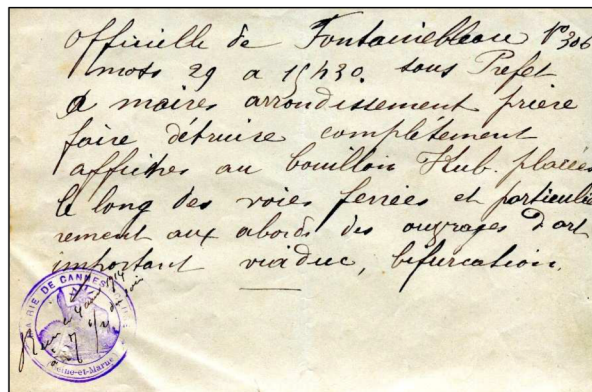 Officielle de Fontainebleau N° 306
mots 29 a 15h30. sous Prefet
a maires arrondissement prière
faire détruire complétement
affiches au bouillon Kub. placées
le long des voies ferrées et particuliè
rement aux abords des ouvrages d'art
important viaduc, bifurcation.
MAIRIE DE CANNES
Seine-et-Marne